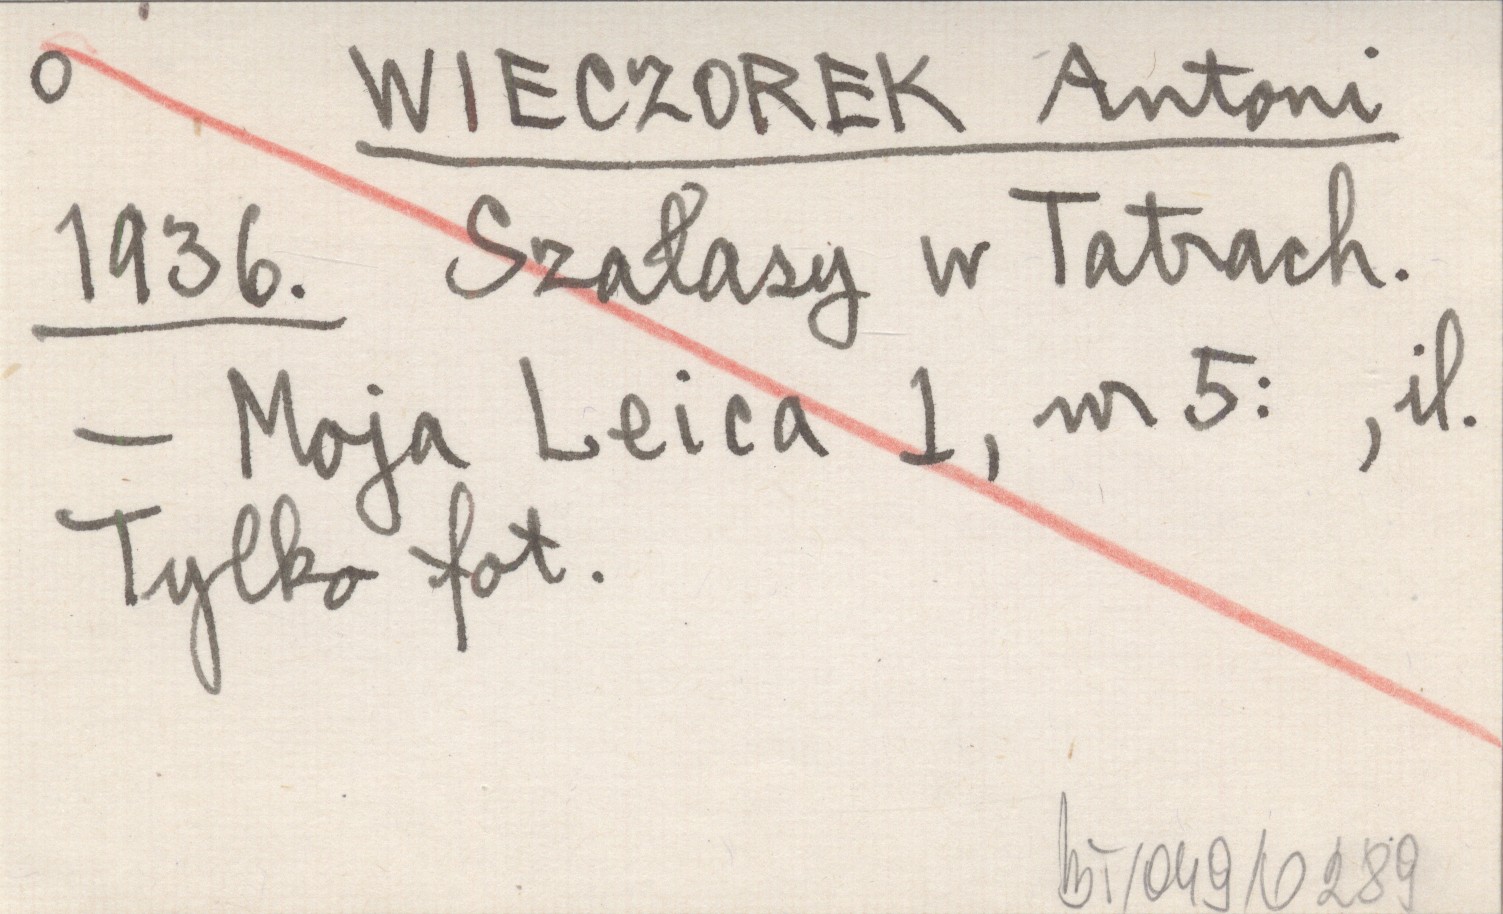 O WIECZOREK Antoni
1936. Szałasy w Tatrach.
— Moja Leica 1, nr 5: , il.
Tylko fot.
BT/049/0289